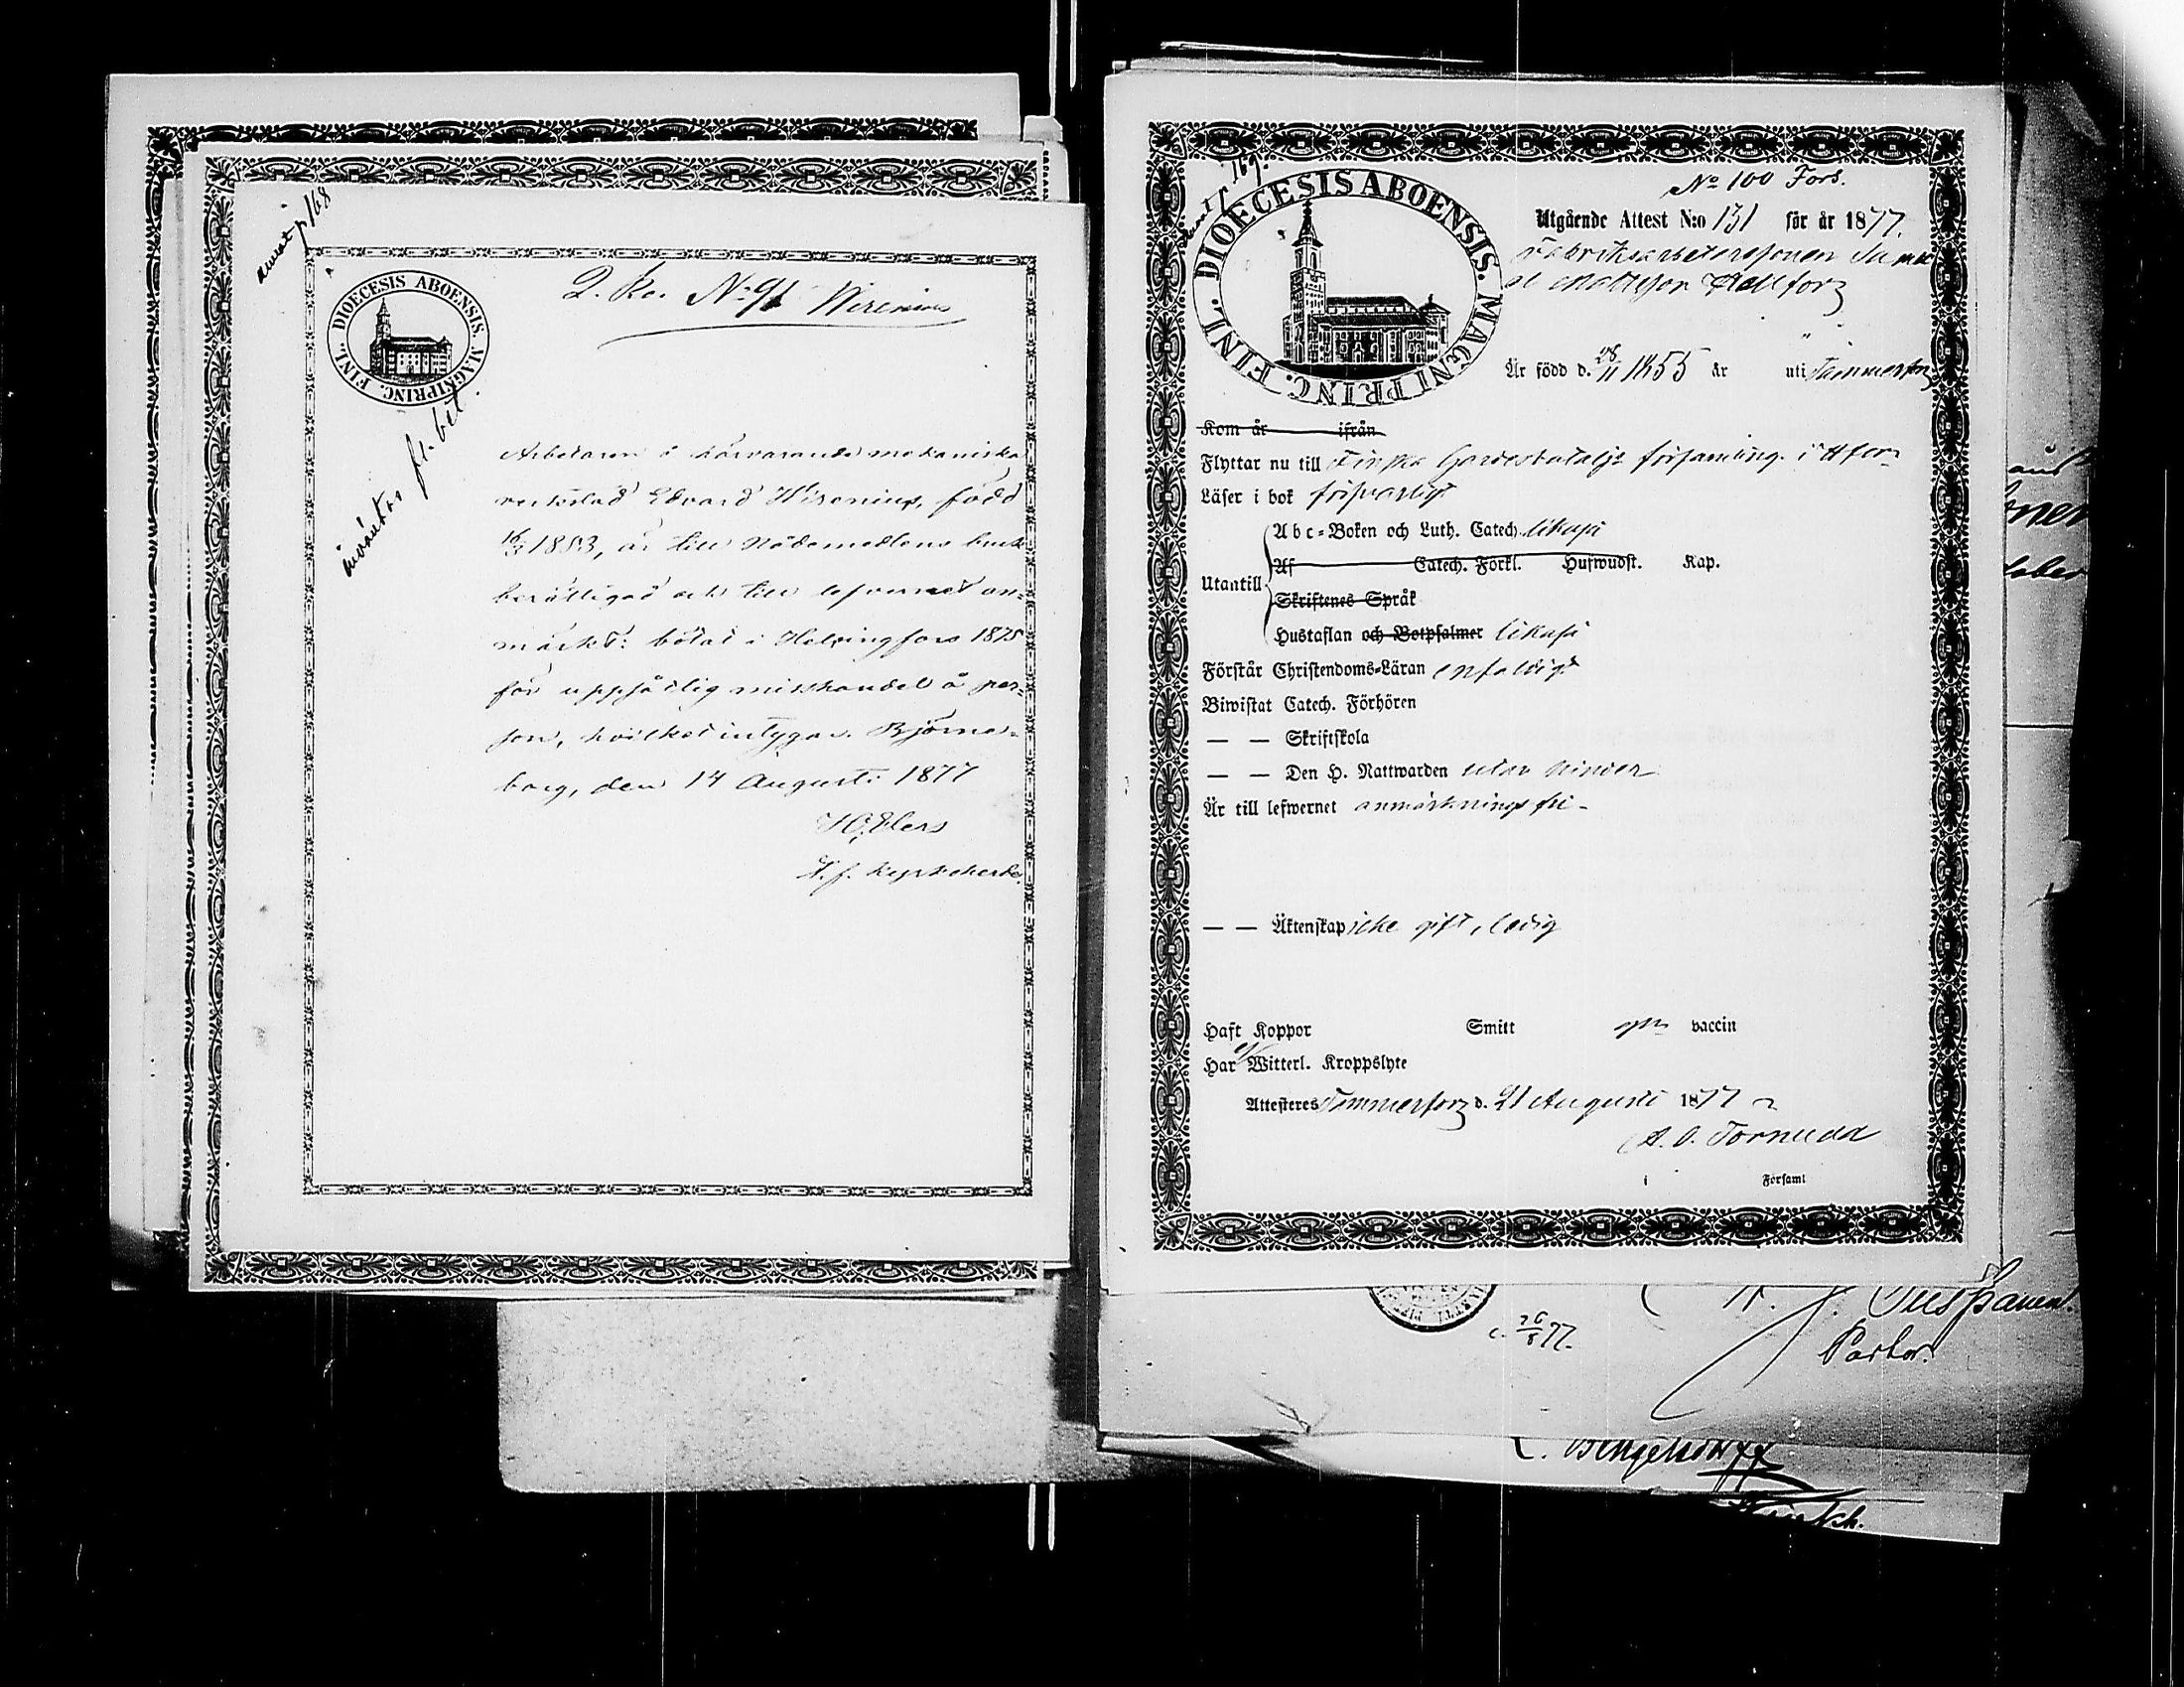 p 168
DIOECESIS ABOENSIS. MAGNI PRINC. FINL.
2. Ko. No 91 Wirenius
inväntas fl. bet.
Arbetaren å härvarande mekaniska
verkstad Edvard Wirenius, född
16/3 1853, är till Nådemedlens bruk
berättigad och till lefvernet an-
märkt: bötat i Helsingfors 1875
för uppsåtlig misshandel å per-
son, hvilket intygar. Björne-
borg, den 14 Augusti 1877
v. f.
169.
DIOECESIS ABOENSIS. MAGNI PRINC. FINL.
No 100 Fors.
Utgående Attest N:o 131 för år 1877.
Fabriksarbetaresonen Samu
el Mattsson Hellfors
Är född d. 28/11 1855 år uti Tammerfors
Kom år ifrån
Flyttar nu till Finska Gardesbataljs församling i Hfors
Läser i bok försvarligt
Abc-Boken och Luth. Catech. likaså
Af Catech. Förkl. Hufwudst. Kap.
Utantill
Skriftenes Språk
Hustaflan och Botpsalmer likaså
Förstår Christendoms-Läran enfaldigt
Biwistat Catech. Förhören
— — Skriftskola
— — Den H. Nattwarden utan hinder
Är till lefwernet anmärkningsfri -
— — Äktenskap icke gift, ledig
Haft Koppor Smitt gm vaccin
Har ej Witterl. Kroppslyte
Attesteres Tammerfors d. 21 Augusti 1877
A. O. Tornudd
i Församl
c. 26/8 77.
Pastor.